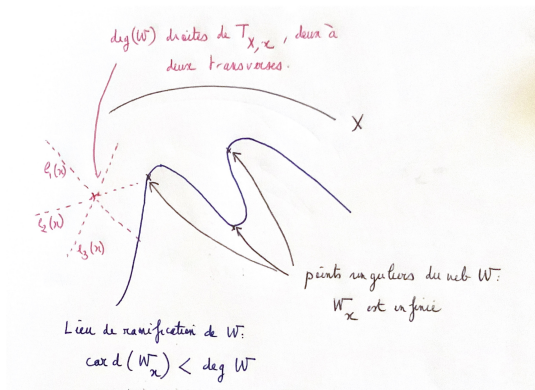 deg(W) droites de T_{X,x}, deux à
deux transverses.
X
ℓ₁(x)
ℓ₂(x)
ℓ₃(x)
points singuliers du web W:
W_x est infinie
Lieu de ramification de W:
card(W_x) < deg W